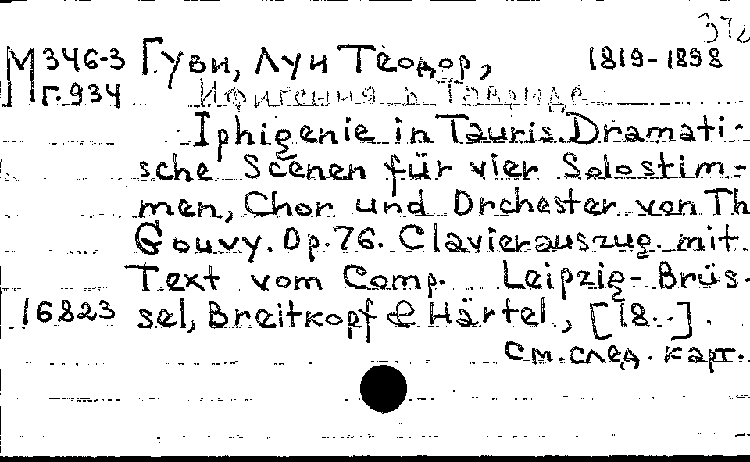 372
М346-3 Гуви, Луи Теодор, 1819-1898
Г.934 Ифигения в Тавриде
Iphigenie in Tauris. Dramati-
sche Scenen für vier Solostim-
men, Chor und Orchester von Th
Gouvy. Op. 76. Clavierauszug mit
Text vom Comp. Leipzig-Brüs-
16823 sel, Breitkopf & Härtel, [18..].
См. след. карт.